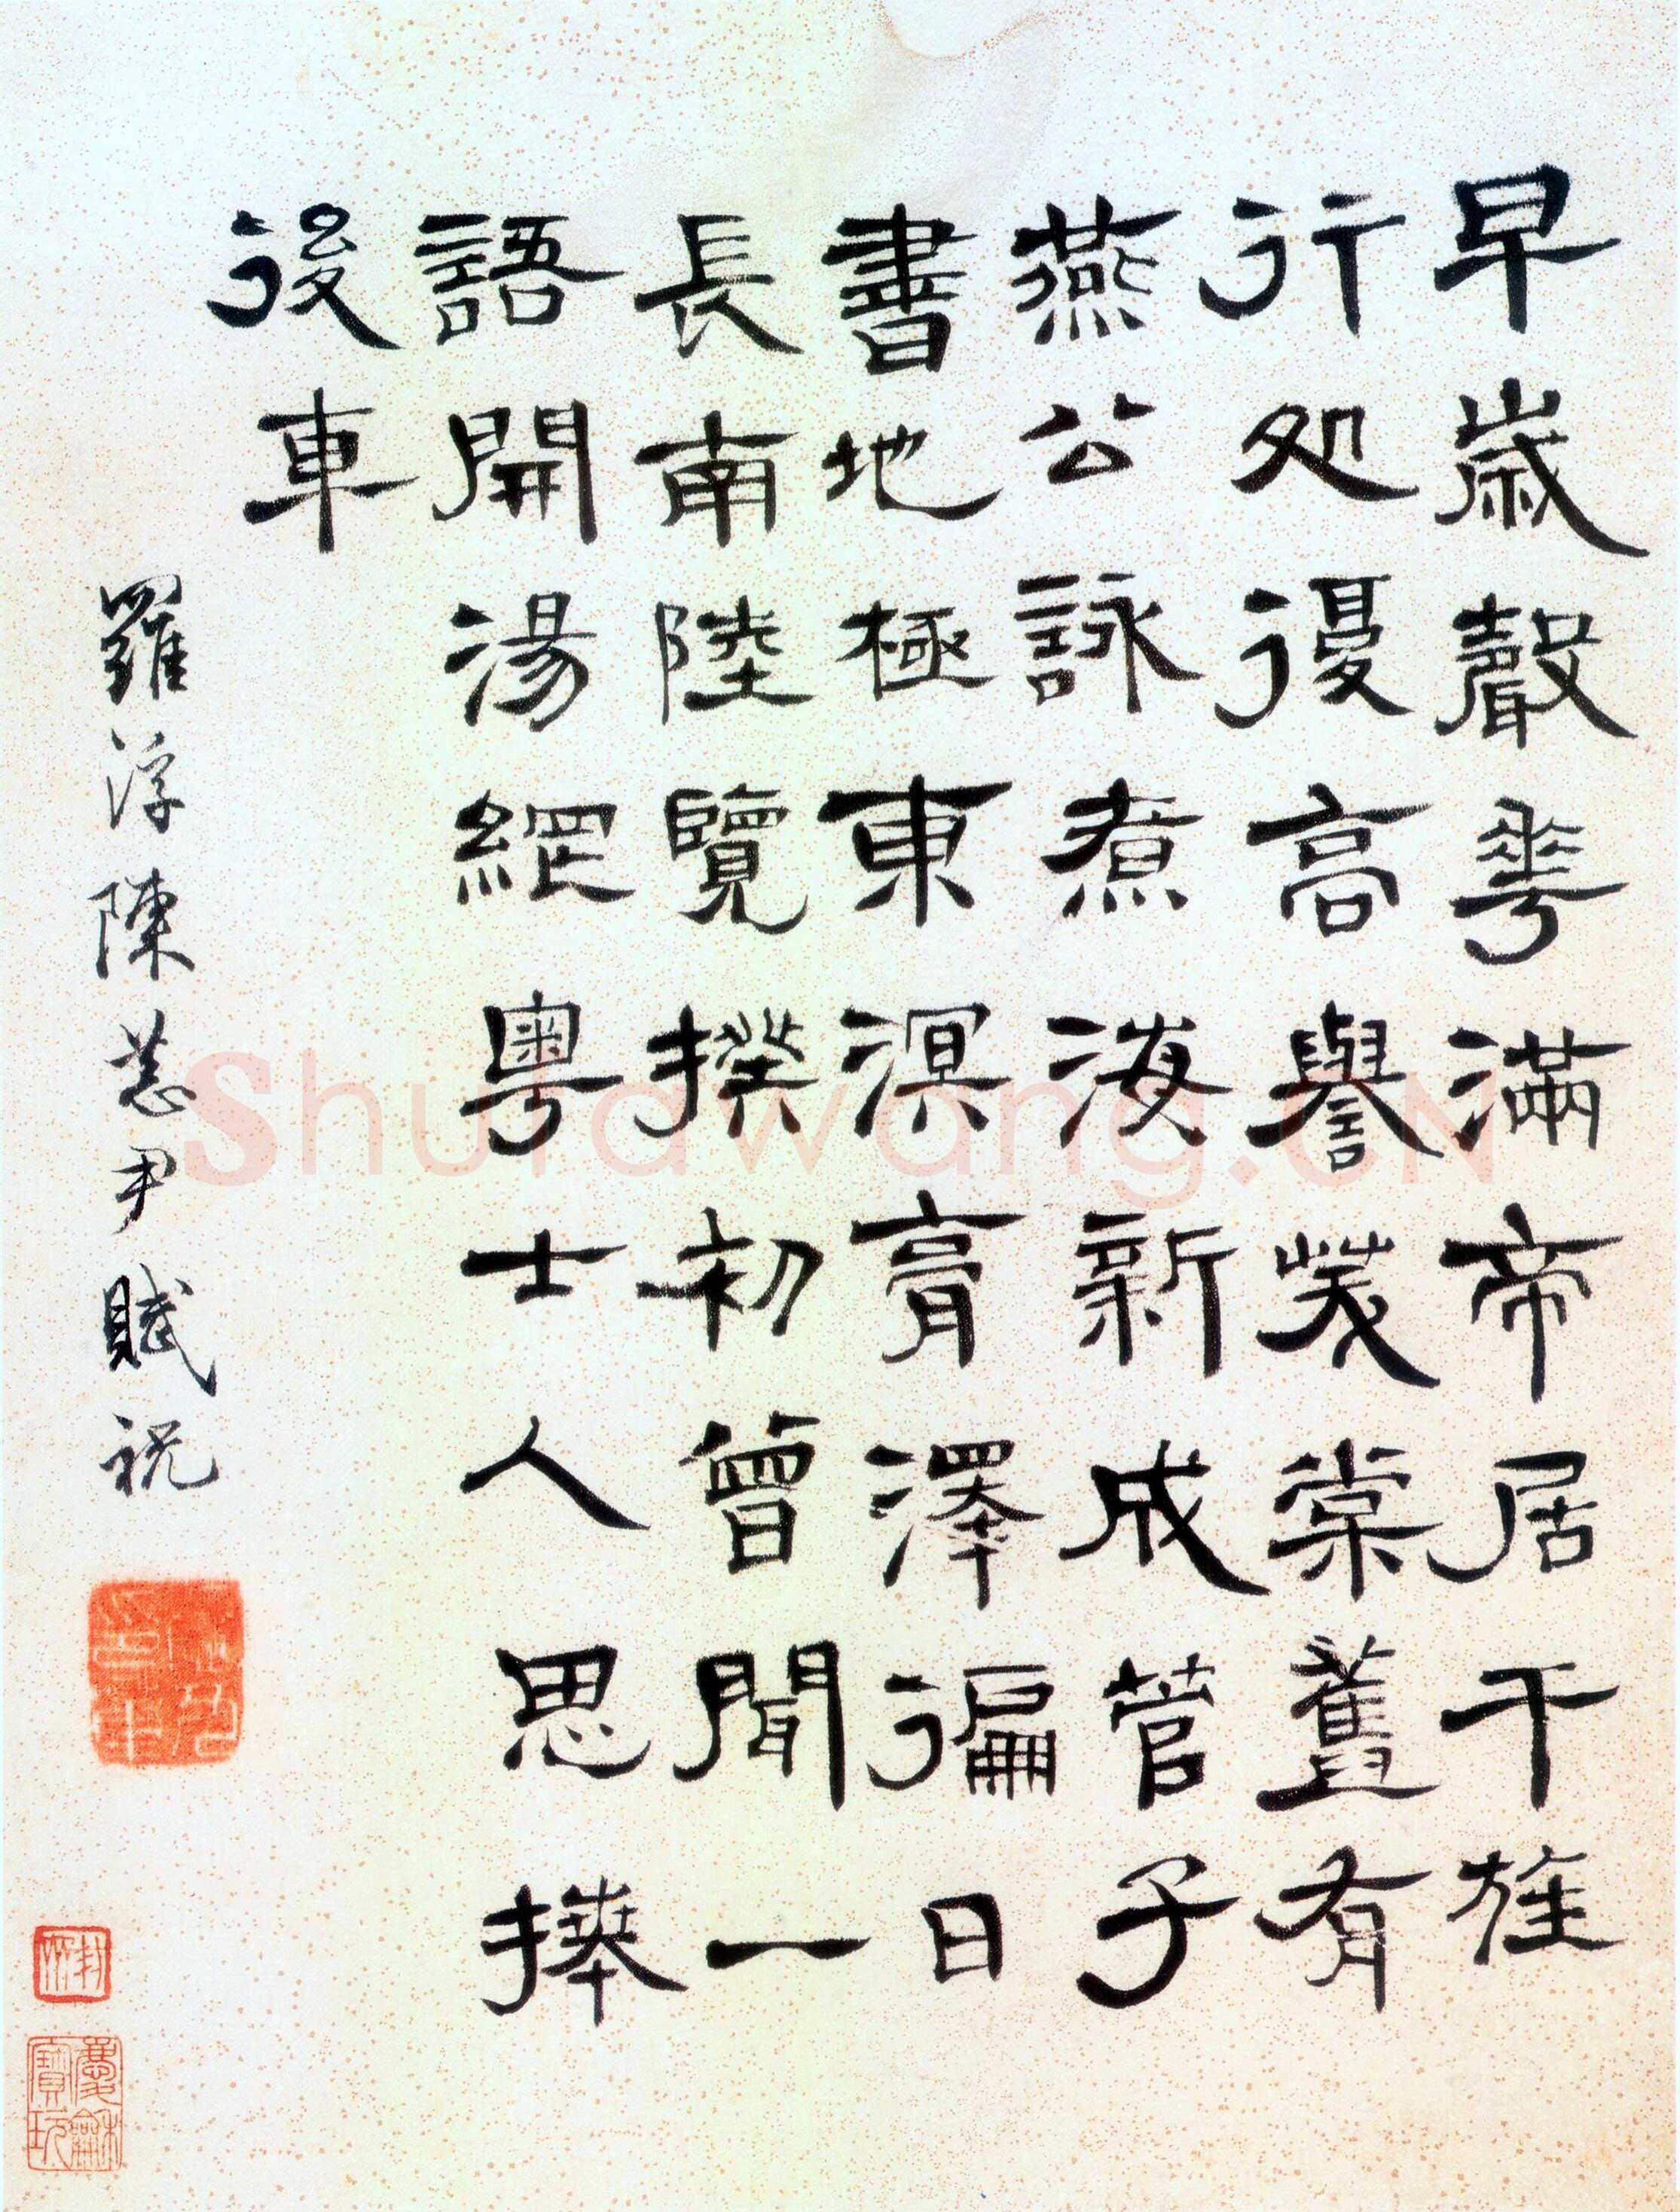 早歲聲華滿帝居干旄
行処優高譽茂棠舊有
燕公詠煮海新成管子
書地極東溟膏澤徧日
長南陸覽揆初曾聞一
語開湯網粵士人思捧
後車
羅浮陳恭尹賦祝
Shufawang.CN